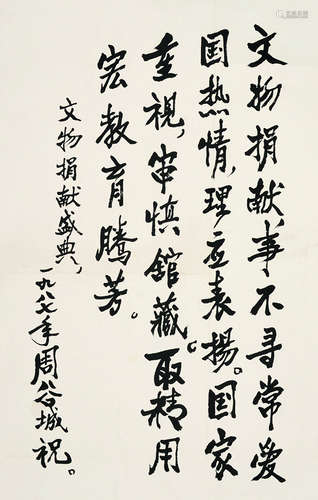 文物捐献，事不寻常爱
国热情，理应表揚。国家
重視，审慎舘藏。取精用
宏教育騰芳。
文物捐献盛典，
一九八七年周谷城祝。